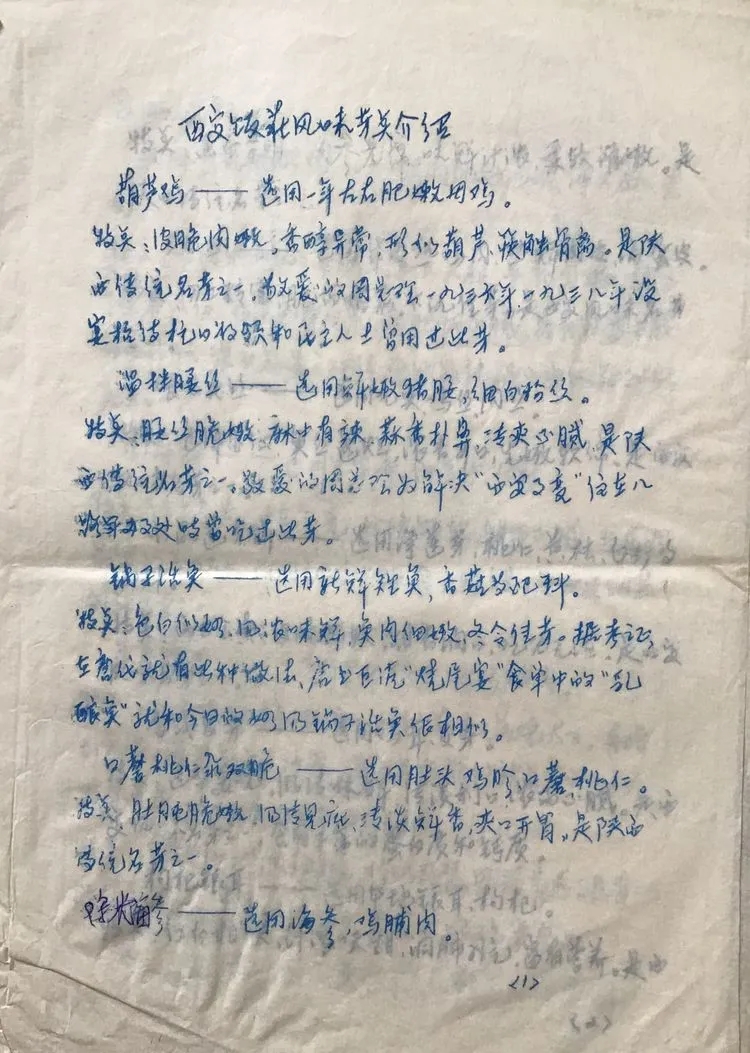 西安饭庄风味菜点介绍
葫芦鸡——选用一年左右肥嫩母鸡。
特点：皮脆肉嫩，香醇异常，形似葫芦，筷触骨离。是陕
西传统名菜之一。敬爱的周总理一九三六年一九三八年设
宴招待抗日将领和民主人士曾用过此菜。
温拌腰丝——选用鲜嫩猪腰，细白粉丝。
特点：腰丝脆嫩，麻中有辣，蒜香扑鼻，清爽不腻，是陕
西传统名菜之一。敬爱的周总理为解决"西安事变"住在八
路军办事处时曾吃过此菜。
锅子鱼——选用新鲜鲤鱼，香菇为配料。
特点：色白似奶，汤浓味鲜，鱼肉细嫩，冬令佳肴。据考证，
在唐代就有此种做法，唐书巨源"烧尾宴"食单中的"乳
酿鱼"就和今日的奶汤锅子鱼很相似。
口蘑桃仁汆双脆——选用肚头，鸡胗，口蘑，桃仁。
特点：肚胗脆嫩，汤清见底，清淡鲜香，爽口开胃。是陕西
传统名菜之一。
海参——选用海参，鸡脯肉。
<1>
<2>